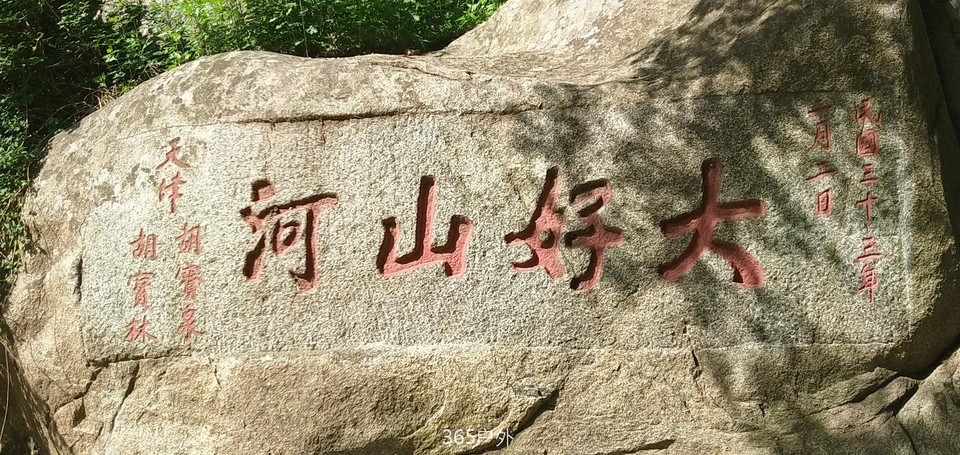 民國三十三年
一月二日
大好山河
天津 胡寶泉
胡寶林
365户外